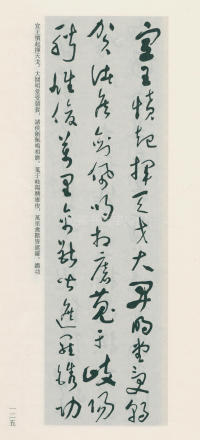 宣王憤起揮天戈大開明堂受朝
賀諸侯劍佩鳴相磨蒐于岐陽
騁雄俊萬里禽獸皆遮羅鐫功
宣王憤起揮天戈，大開明堂受朝賀，諸侯劍佩鳴相磨。蒐于岐陽騁雄俊，萬里禽獸皆遮羅。鐫功
一二五